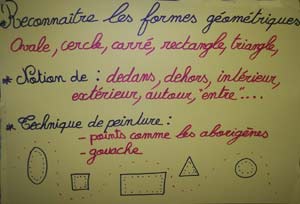 Reconnaître les formes géométriques
Ovale, cercle, carré, rectangle, triangle,
* Notion de : dedans, dehors, intérieur,
extérieur, autour, "entre"....
* Technique de peinture :
- points comme les aborigènes
- gouache